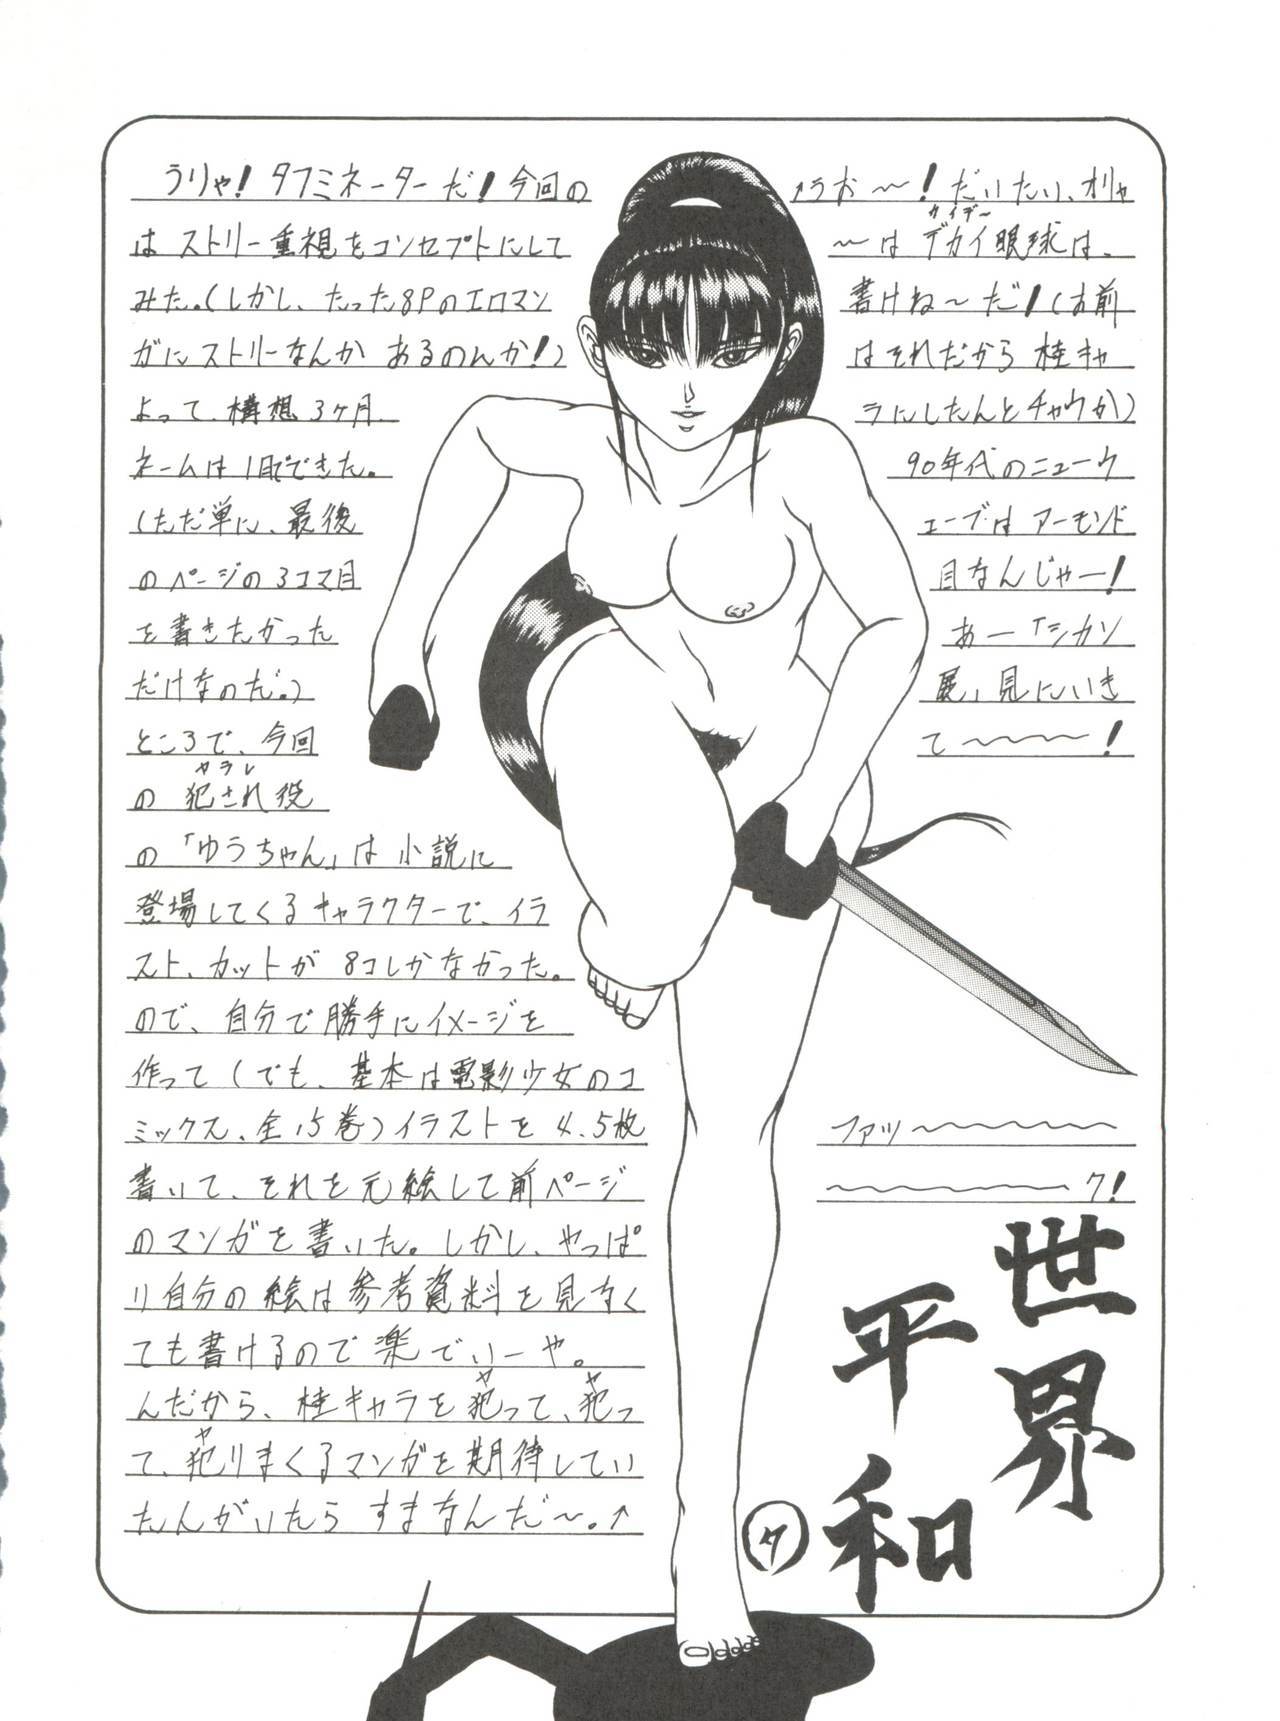 うりゃ!タフミネーターだ!今回の
はストリー重視をコンセプトにして
みた。(しかし、たった8Pのエロマン
ガにストリーなんかあるのんか!)
よって、構想3ヶ月、
ネームは1日でできた。
(ただ単に、最後
のページの3コマ目
を書きたかった
だけなのだ。)
ところで、今回
の犯され役
ヤラレ
の「ゆうちゃん」は小説に
登場してくるキャラクターで、イラ
スト、カットが8コしかなかった。
ので、自分で勝手にイメージを
作って(でも、基本は電影少女のコ
ミックス、全15巻)イラストを4、5枚
書いて、それを元絵して前ページ
のマンガを書いた。しかし、やっぱ
り自分の絵は参考資料を見なく
ても書けるので楽でいーや。
んだから、桂キャラを犯って、犯っ
ヤ ヤ
て、犯りまくるマンガを期待してい
ヤ
たんがいたらすまなんだ〜。↑
↑うお〜!だいたい、オリャ
〜はデカイ眼球は、
書けね〜だ!(お前
はそれだから桂キャ
ラにしたんとチャウか)
90年代のニューウ
ェーブはアーモンド
目なんじゃー!
あー「シカソ
展」見にいき
て〜〜〜〜!
ファッ〜〜〜〜〜〜
〜〜〜〜〜〜〜〜ク!
世界
平和
タ